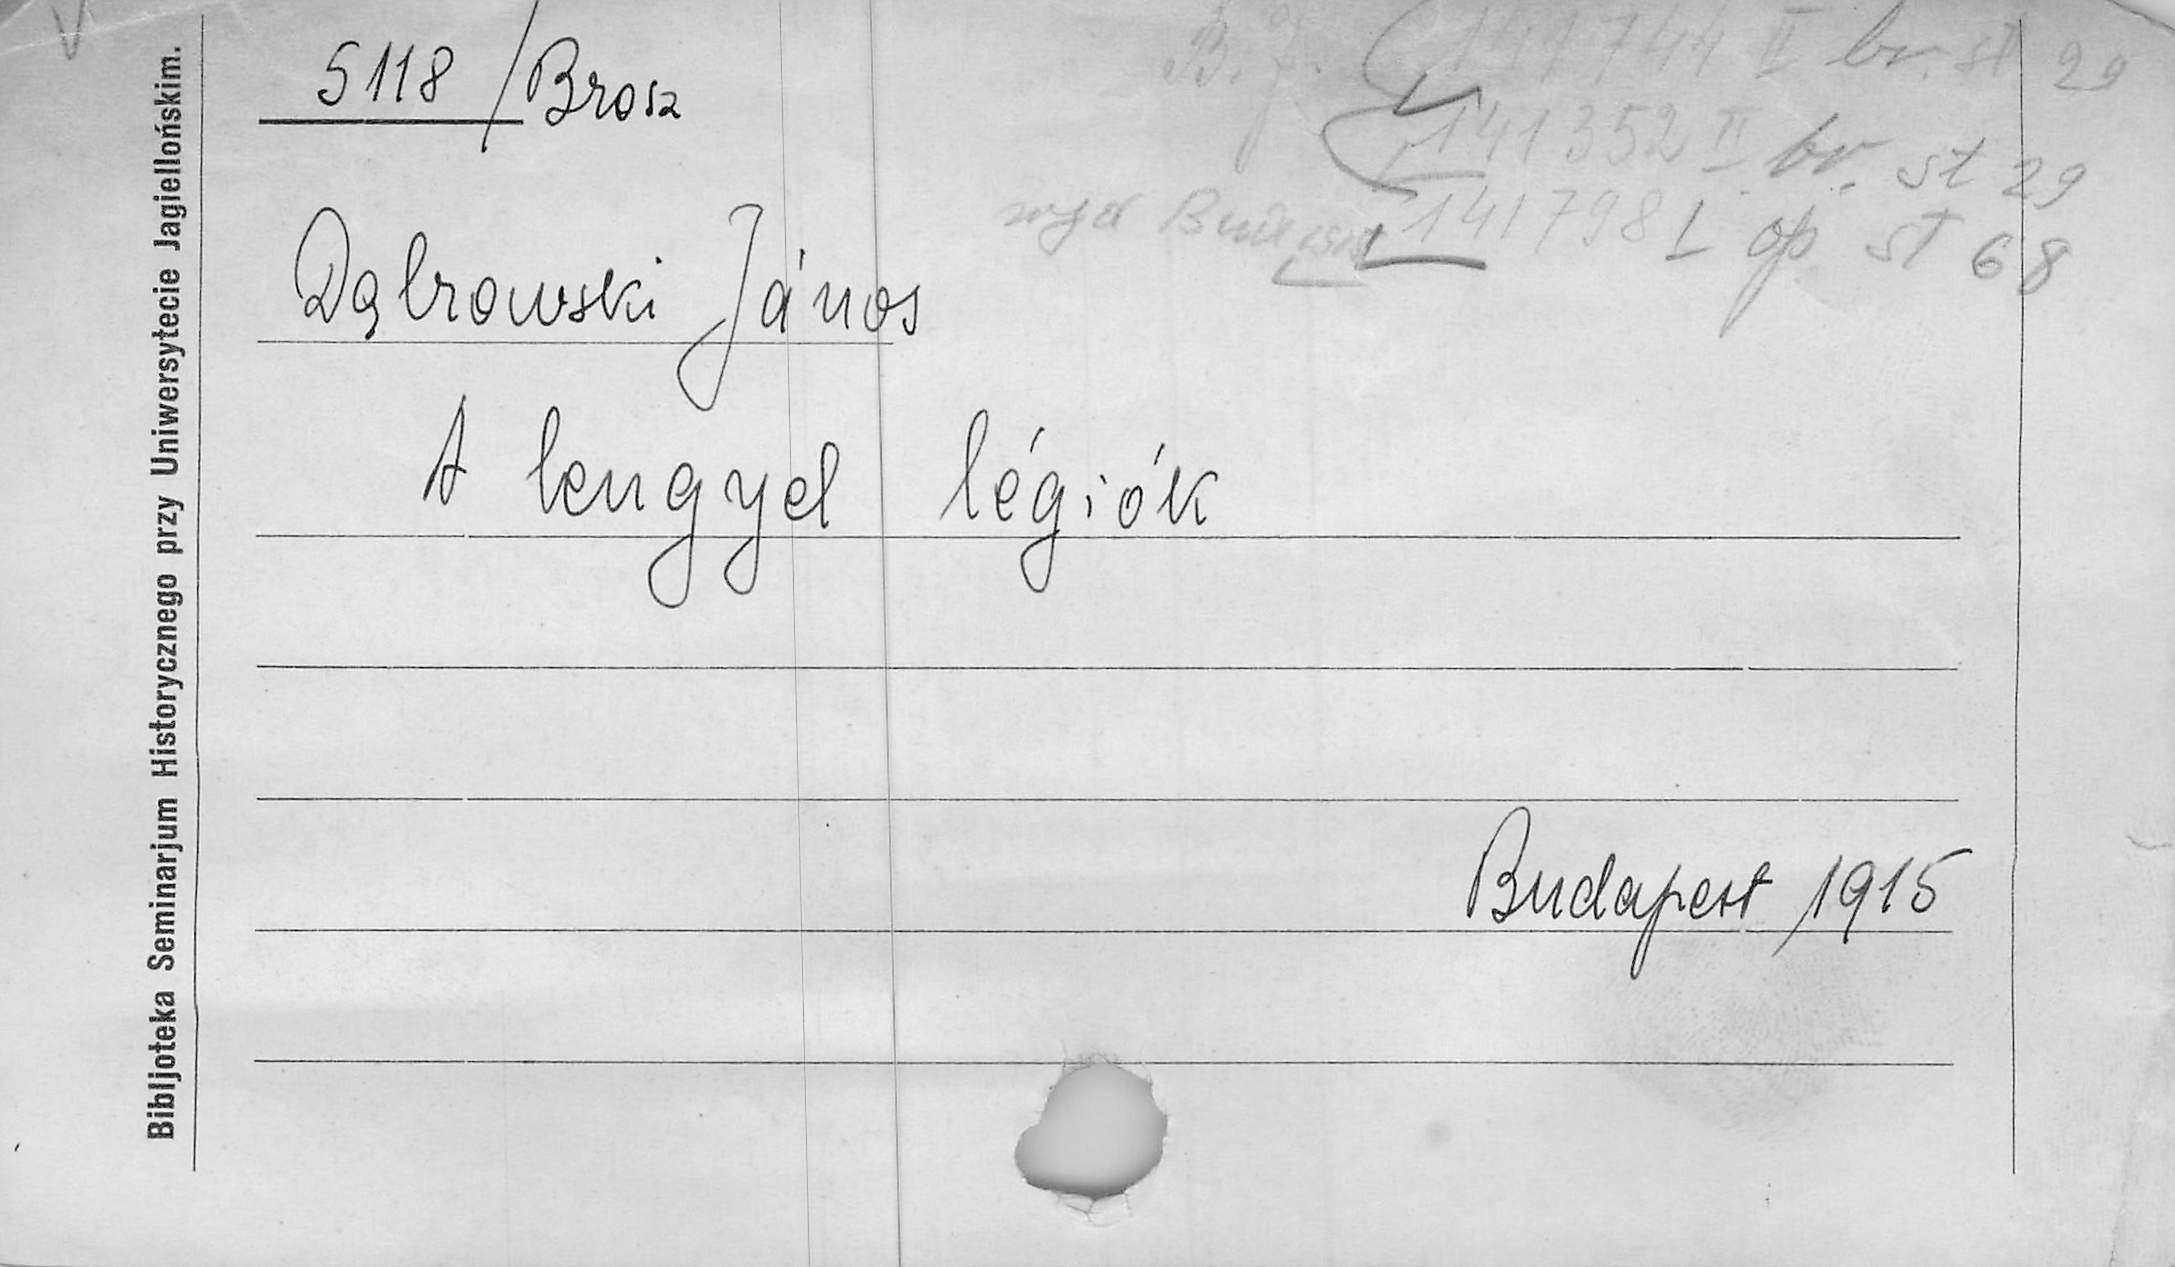 Bibljoteka Seminarjum Historycznego przy Uniwersytecie Jagiellońskim.
5118 / Brosz
B.J. 141744 II br. st 29
141352 II br. st 29
141798 I op st 68
Dąbrowski János
A lengyel légiók
Budapest 1915